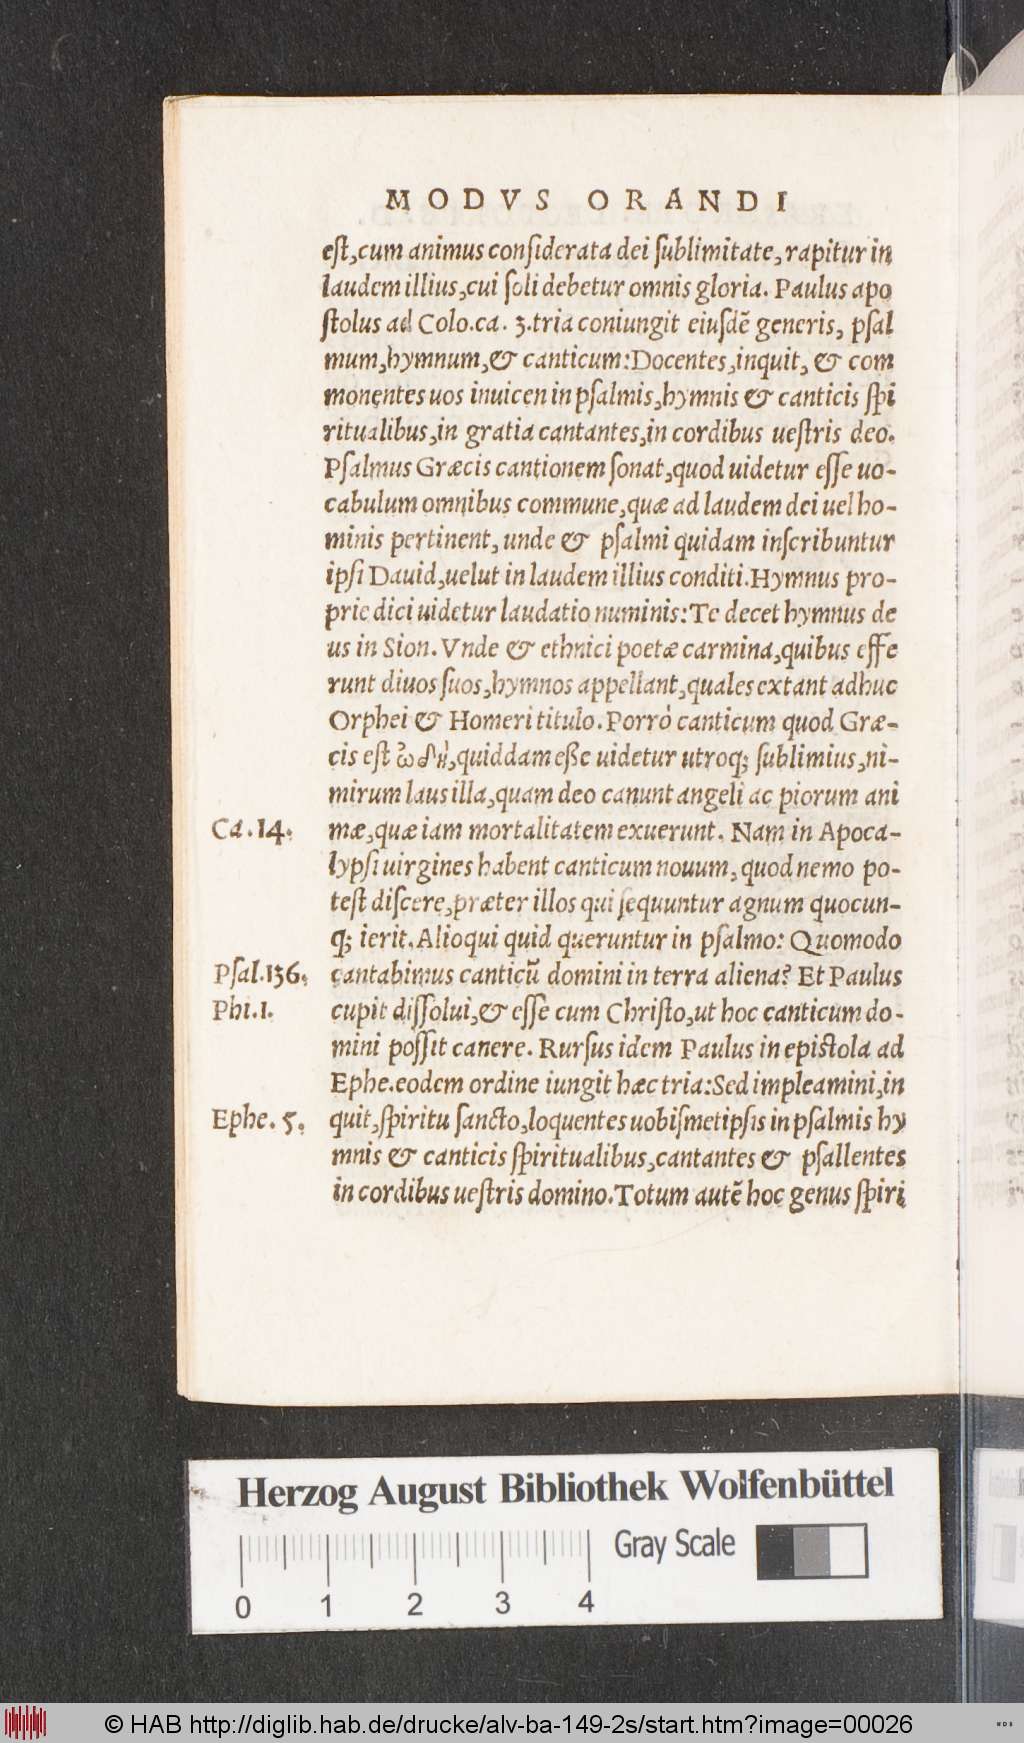 MODVS ORANDI
est, cum animus considerata dei sublimitate, rapitur in
laudem illius, cui soli debetur omnis gloria. Paulus apo
stolus ad Colo. ca. 3. tria coniungit eiusdē generis, psal
mum, hymnum, & canticum: Docentes, inquit, & com
monentes uos inuicen in psalmis, hymnis & canticis spi
ritualibus, in gratia cantantes, in cordibus uestris deo.
Psalmus Græcis cantionem sonat, quod uidetur esse uo-
cabulum omnibus commune, quæ ad laudem dei uel ho-
minis pertinent, unde & psalmi quidam inscribuntur
ipsi Dauid, uelut in laudem illius conditi. Hymnus pro-
prie dici uidetur laudatio numinis: Te decet hymnus de
us in Sion. Vnde & ethnici poetæ carmina, quibus effe
runt diuos suos, hymnos appellant, quales extant adhuc
Orphei & Homeri titulo. Porrò canticum quod Græ-
cis est ὠδὴ, quiddam eße uidetur utroq; sublimius, ni-
mirum laus illa, quam deo canunt angeli ac piorum ani
Ca. 14. mæ, quæ iam mortalitatem exuerunt. Nam in Apoca-
lypsi uirgines habent canticum nouum, quod nemo po-
test discere, præter illos qui sequuntur agnum quocun-
q; ierit. Alioqui quid queruntur in psalmo: Quomodo
Psal. 136. cantabimus canticū domini in terra aliena? Et Paulus
Phi. 1. cupit dissolui, & esse cum Christo, ut hoc canticum do-
mini possit canere. Rursus idem Paulus in epistola ad
Ephe. eodem ordine iungit hæc tria: Sed impleamini, in
Ephe. 5. quit, spiritu sancto, loquentes uobismetipsis in psalmis hy
mnis & canticis spiritualibus, cantantes & psallentes
in cordibus uestris domino. Totum autē hoc genus spiri
Herzog August Bibliothek Wolfenbüttel
Gray Scale
0 1 2 3 4
© HAB http://diglib.hab.de/drucke/alv-ba-149-2s/start.htm?image=00026